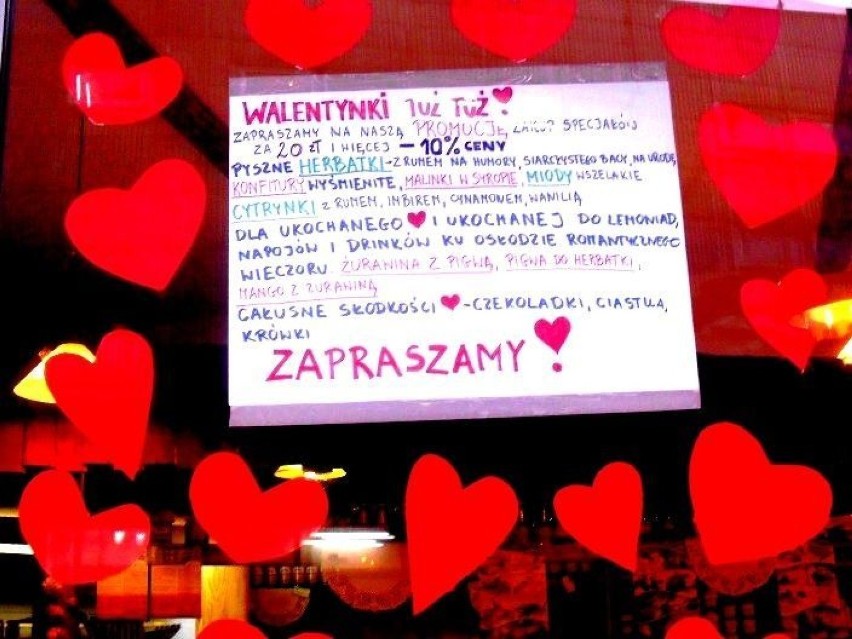 WALENTYNKI JUŻ TUŻ!
ZAPRASZAMY NA NASZĄ PROMOCJĘ, ZAKUP SPECJAŁÓW
ZA 20 ZŁ I WIĘCEJ - 10% CENY
PYSZNE HERBATKI - Z RUMEM NA HUMORY, SIARCZYSTEGO BACY, NA URODĘ,
KONFITURY WYŚMIENITE, MALINKI W SYROPIE, MIODY WSZELAKIE
CYTRYNKI Z RUMEM, IMBIREM, CYNAMONEM, WANILIĄ
DLA UKOCHANEGO I UKOCHANEJ DO LEMONIAD,
NAPOJÓW I DRINKÓW KU OSŁODZIE ROMANTYCZNEGO
WIECZORU. ŻURAWINA Z PIGWĄ, PIGWA DO HERBATKI,
MANGO Z ŻURAWINĄ
CAŁUŚNE SŁODKOŚCI - CZEKOLADKI, CIASTKA,
KRÓWKI
ZAPRASZAMY!